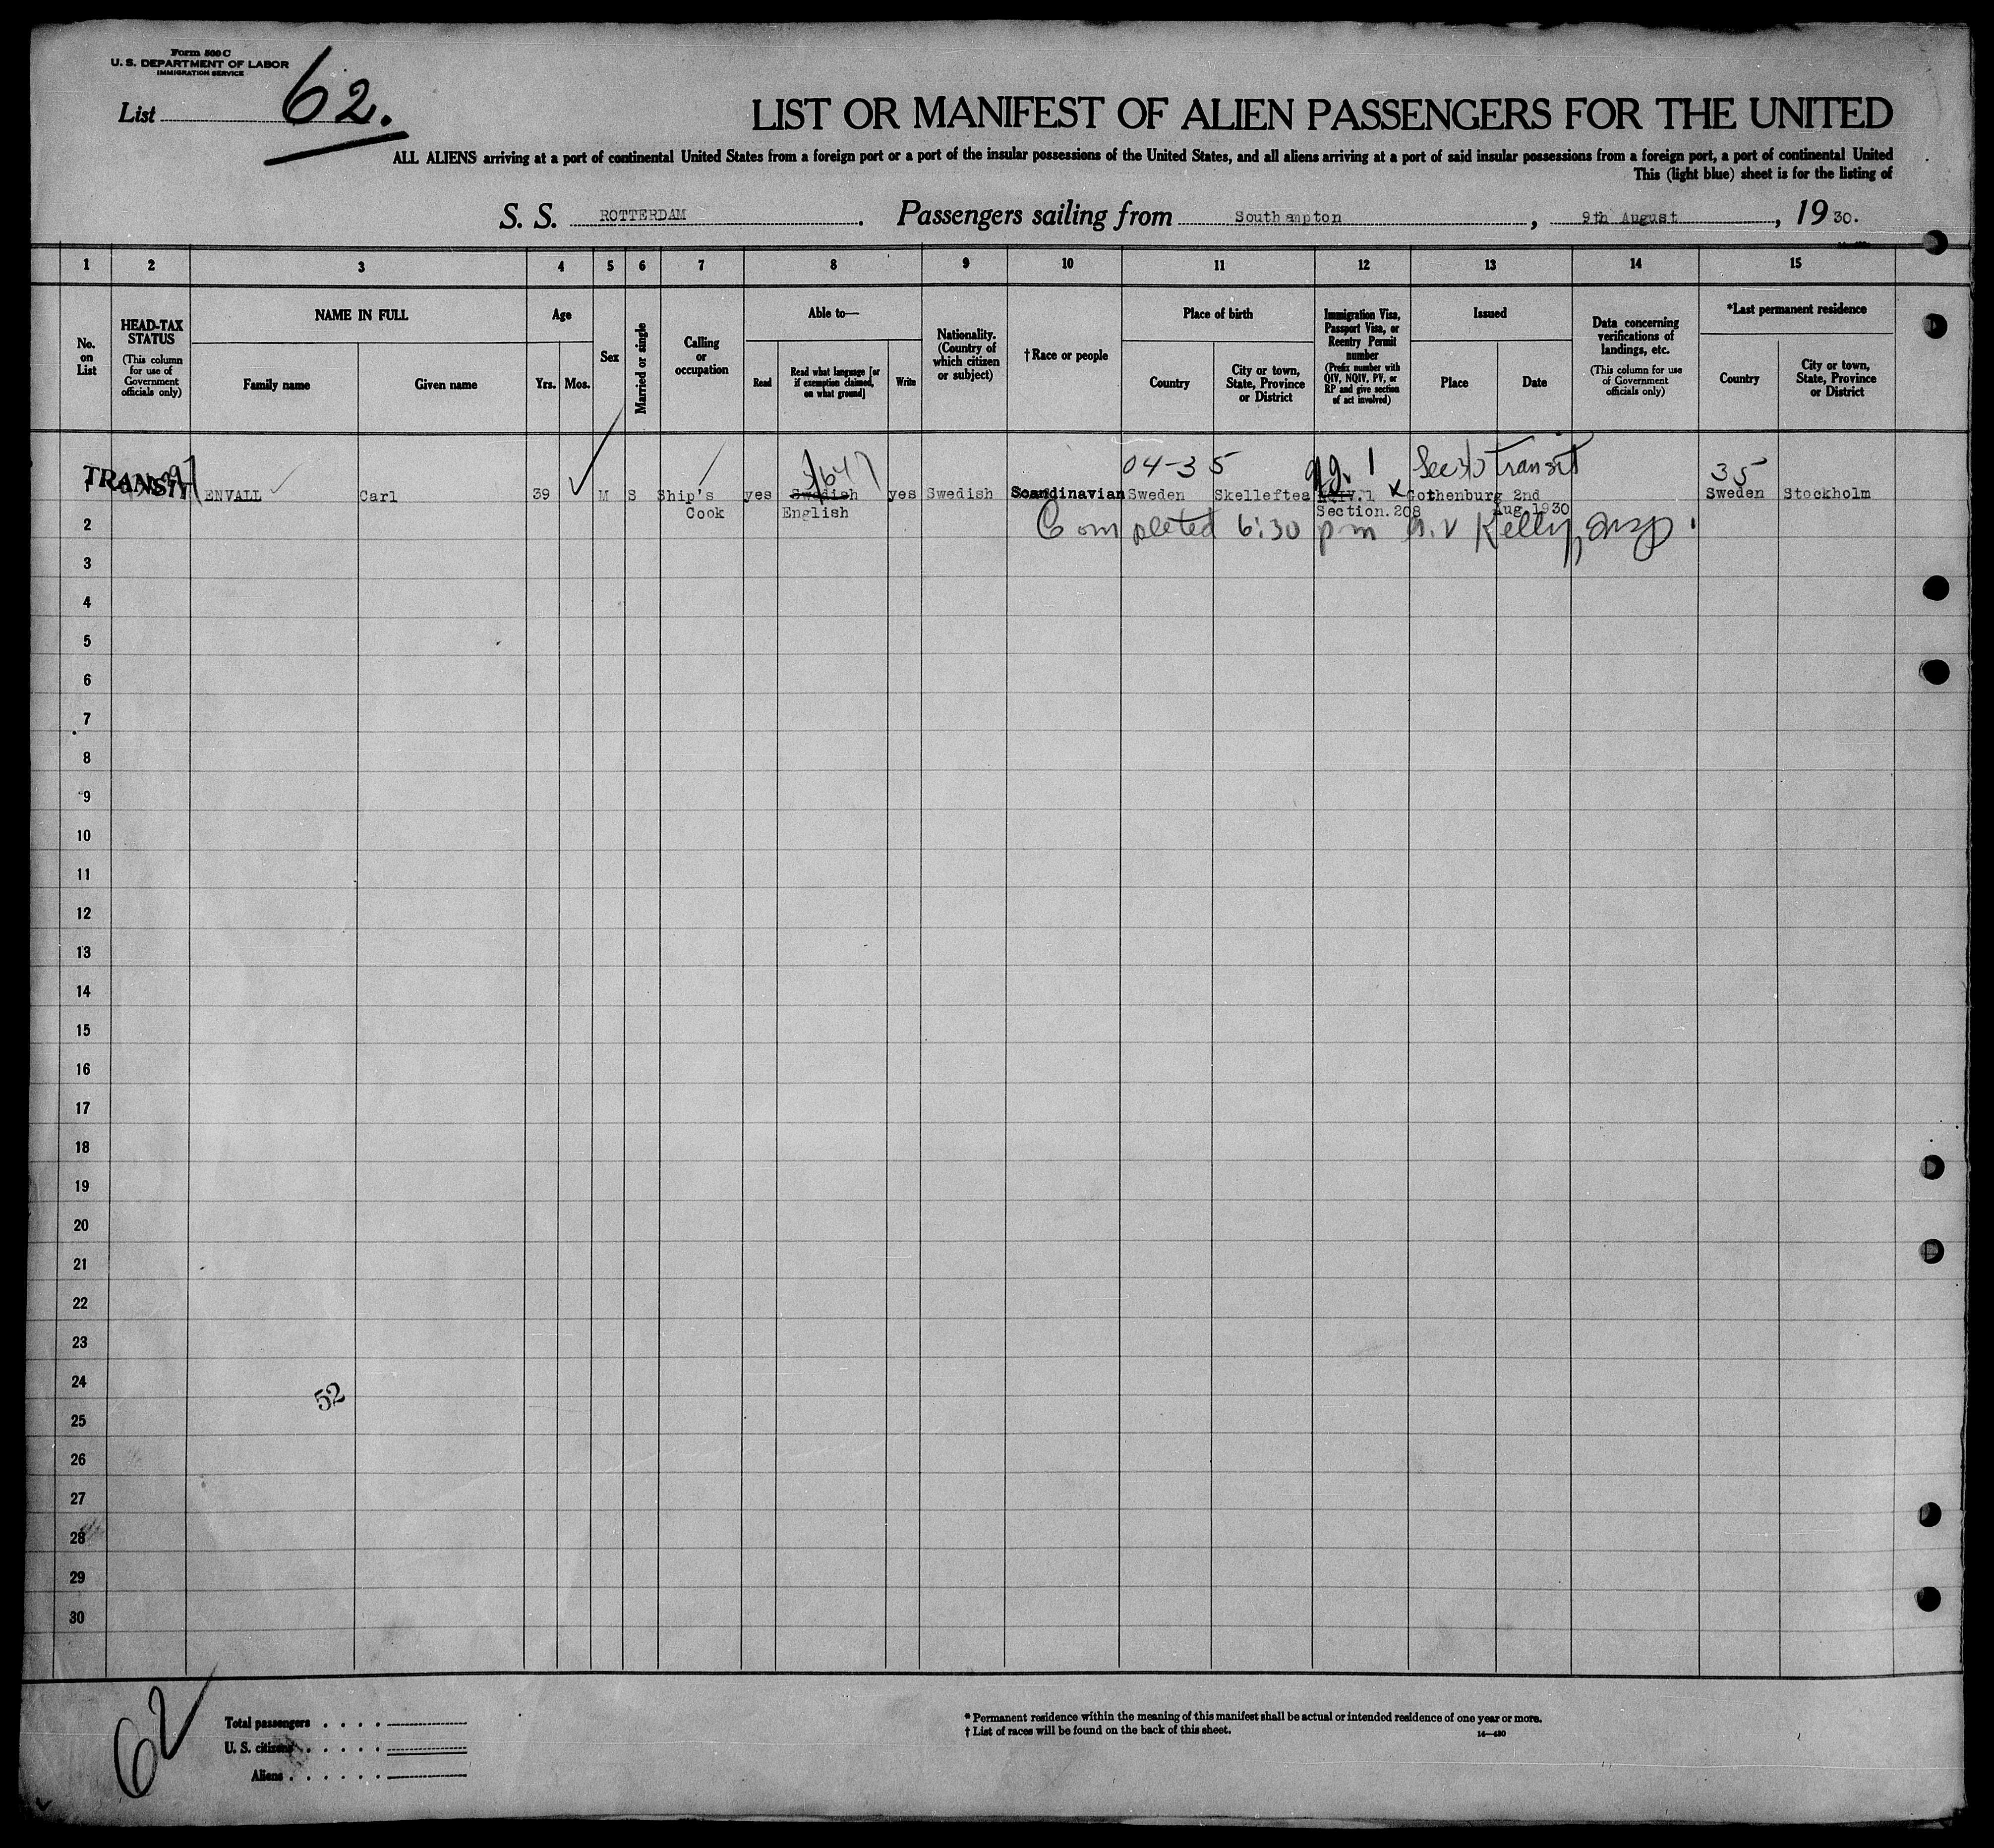 Form 500 C
U. S. DEPARTMENT OF LABOR
IMMIGRATION SERVICE
List 62.
LIST OR MANIFEST OF ALIEN PASSENGERS FOR THE UNITED
ALL ALIENS arriving at a port of continental United States from a foreign port or a port of the insular possessions of the United States, and all aliens arriving at a port of said insular possessions from a foreign port, a port of continental United
This (light blue) sheet is for the listing of
S. S. ROTTERDAM. Passengers sailing from Southampton, 9th August, 1930.
1 2 3 4 5 6 7 8 9 10 11 12 13 14 15
No. on List
HEAD-TAX STATUS
(This column for use of Government officials only)
NAME IN FULL
Family name Given name
Age
Yrs. Mos.
Sex
Married or single
Calling or occupation
Able to—
Read
Read what language [or if exemption claimed, on what ground]
Write
Nationality. (Country of which citizen or subject)
†Race or people
Place of birth
Country
City or town, State, Province or District
Immigration Visa, Passport Visa, or Reentry Permit number
(Prefix number with QIV, NQIV, PV, or RP and give section of act involved)
Issued
Place Date
Data concerning verifications of landings, etc.
(This column for use of Government officials only)
*Last permanent residence
Country
City or town, State, Province or District
04-35 Transit 35
TRANSIT ENVALL Carl 39 M S Ship's yes Swedish yes Swedish Scandinavian Sweden Skelleftea NQIV.1 Gothenburg 2nd Sweden Stockholm
Cook English Section.208 Aug 1930
2 Completed 6:30 pm Kelly, Insp.
3
4
5
6
7
8
9
10
11
12
13
14
15
16
17
18
19
20
21
22
23
24
52
25
26
27
28
29
30
62
Total passengers
U. S. citizens
Aliens
* Permanent residence within the meaning of this manifest shall be actual or intended residence of one year or more.
† List of races will be found on the back of this sheet.
14—430